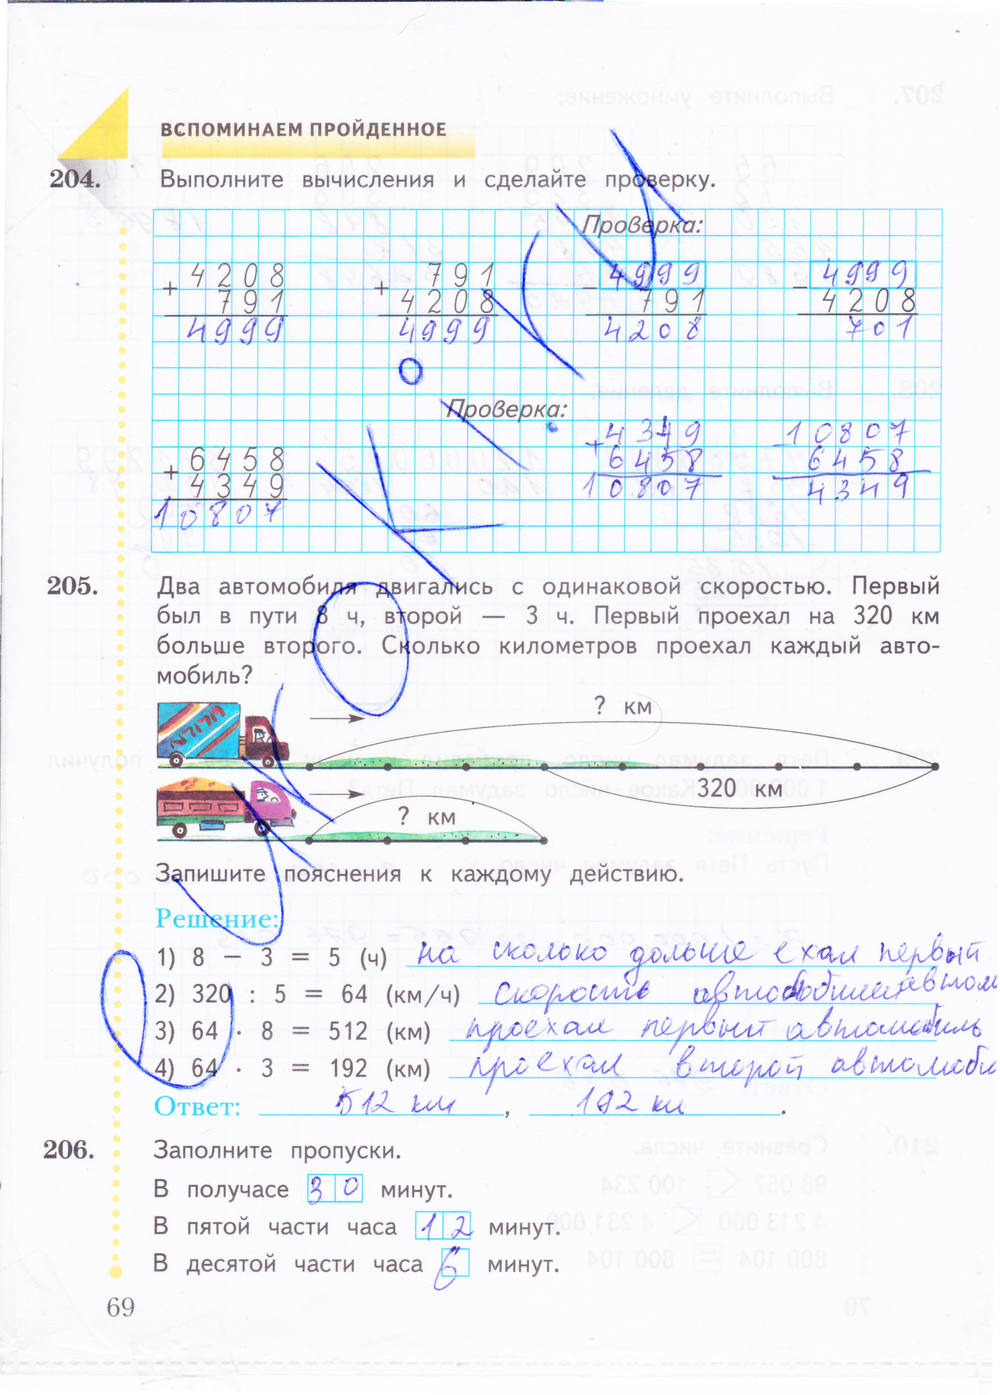 ВСПОМИНАЕМ ПРОЙДЕННОЕ
204. Выполните вычисления и сделайте проверку.
Проверка:
+ 4208 + 791 − 4999 − 4999
791 4208 791 4208
4999 4999 4208 701
Проверка:
+ 4349 − 10807
+ 6458 6458 6458
4349 10807 4349
10807
205. Два автомобиля двигались с одинаковой скоростью. Первый
был в пути 8 ч, второй — 3 ч. Первый проехал на 320 км
больше второго. Сколько километров проехал каждый авто-
мобиль?
? км
320 км
? км
Запишите пояснения к каждому действию.
Решение:
1) 8 − 3 = 5 (ч) на сколько дольше ехал первый
автом
2) 320 : 5 = 64 (км/ч) скорость автомобилей
3) 64 · 8 = 512 (км) проехал первый автомобиль
4) 64 · 3 = 192 (км) проехал второй автомоби
Ответ: 512 км, 192 км.
206. Заполните пропуски.
В получасе 30 минут.
В пятой части часа 12 минут.
В десятой части часа 6 минут.
69